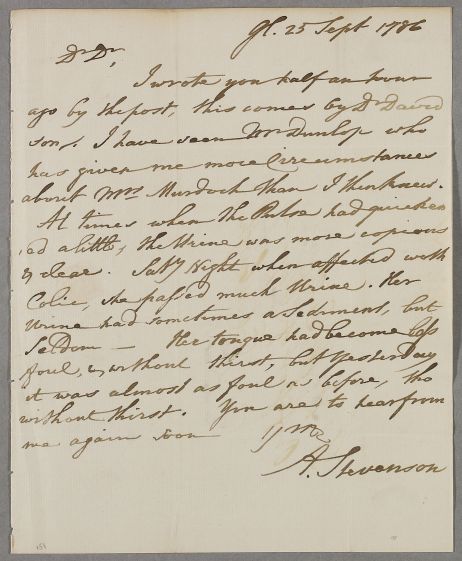 Gl. 25 Sept 1786
Dr Dr,
I wrote you half an hour
ago by the post, this comes by Dr David
son. I have seen Mr Dunlop who
has given me more Circumstances
about Mrs Murdoch than I then knew.
At times when the Pulse had quicken
ed a little, the Urine was more copious
& clear. Saty Night when affected with
Colic, she passed much Urine. Her
Urine had sometimes a Sediment, but
Seldom — Her tongue had become less
foul, & without thirst, but yesterday
it was almost as foul as before, tho
without thirst. You are to hear from
me again soon
A. Stevenson
151